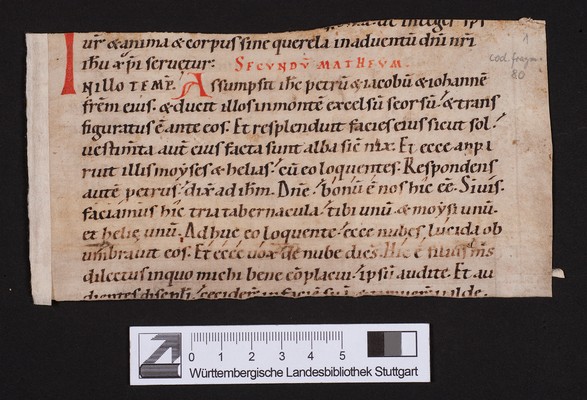 integer sp̅s
ur̅ & anima & corpus sine querela in aduentu dn̅i nr̅i
ih̅u xp̅i seruetur: SECUNDU̅ MATHEUM.
IN ILLO TEMP̅. Assumpsit ih̅c petru̅ & iacobu̅ & iohanne̅
fr̅em eius. & ducit illos in monte̅ excelsu̅ seorsu̅. & trans
figuratus e̅ ante eos. Et resplenduit facies eius sicut sol.
uestim̅ta aut̅ eius facta sunt alba sic̅ nix. Et ecce appa
ruit illis moyses & helias. cu̅ eo loquentes. Respondens
aute̅ petrus. dix̅ ad ih̅m. Dn̅e. bonu̅ e̅ nos hic e̅e. Si uis.
faciamus hic tria tabernacula. tibi unu̅. & moysi unu̅.
et helie unu̅. Adhuc eo loquente. ecce nubes lucida ob
umbrauit eos. Et ecce uox de nube dice̅s. Hic e̅ filius m̅s
dilectus in quo michi bene co̅placui. ipsu̅ audite. Et au
dientes discipli. cecider̅ in facie̅ sua̅. & timuer̅ ualde.
1
cod. fragm.
80
0 1 2 3 4 5
Württembergische Landesbibliothek Stuttgart